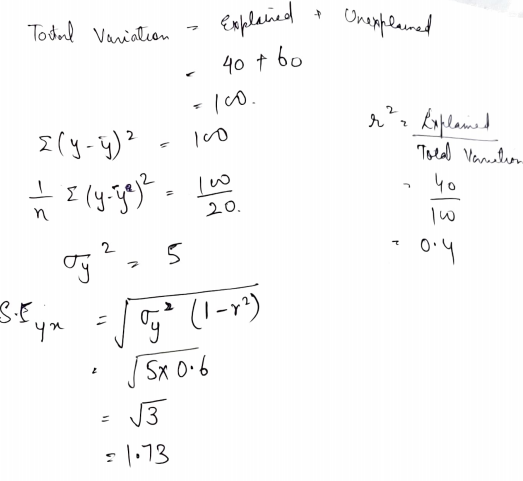 Total Variation = Explained + Unexplained
= 40 + 60
= 100.
Σ(y-ȳ)² = 100
1/n Σ(y-ȳ)² = 100/20.
σy² = 5
S.E yx = √σy² (1-r²)
= √5x0.6
= √3
= 1.73
r² = Explained
Total Variation
= 40/100
= 0.4